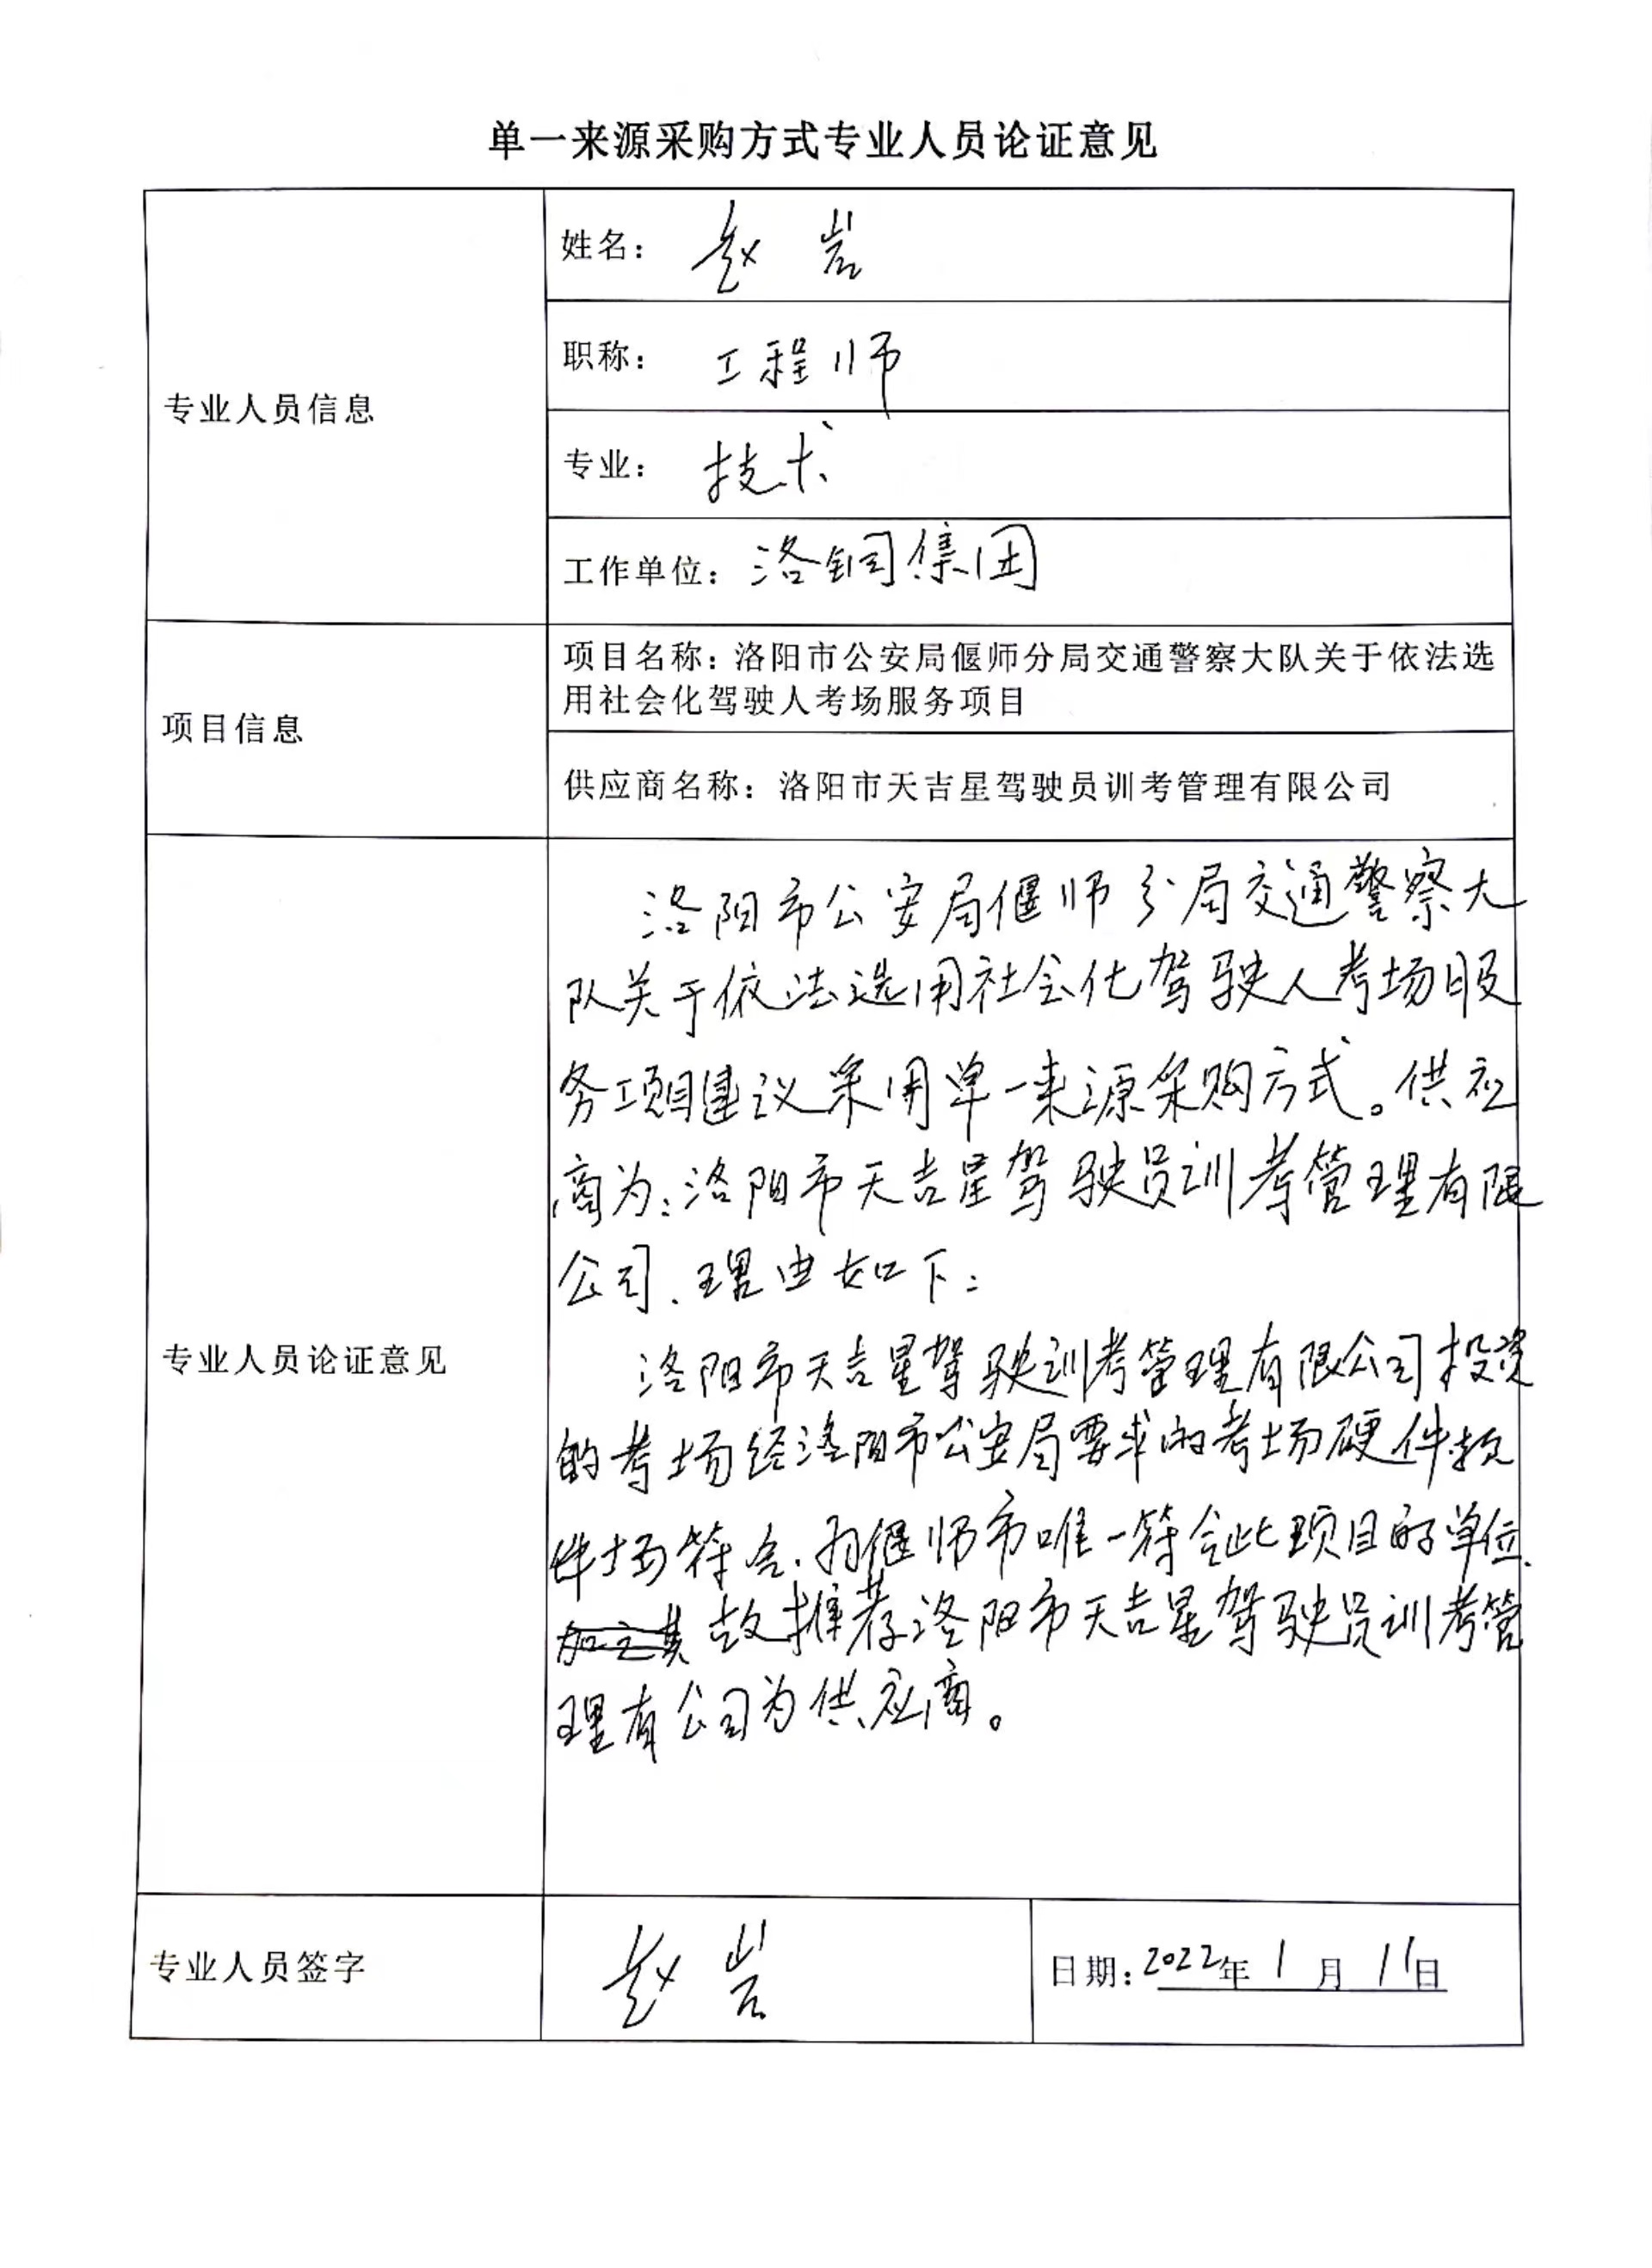 单一来源采购方式专业人员论证意见
专业人员信息
姓名：赵岩
职称：工程师
专业：技术
工作单位：洛铜集团
项目信息
项目名称：洛阳市公安局偃师分局交通警察大队关于依法选
用社会化驾驶人考场服务项目
供应商名称：洛阳市天吉星驾驶员训考管理有限公司
专业人员论证意见
洛阳市公安局偃师分局交通警察大
队关于依法选用社会化驾驶人考场服
务项目建议采用单一来源采购方式。供应
商为：洛阳市天吉星驾驶员训考管理有限
公司、理由如下：
洛阳市天吉星驾驶训考管理有限公司投资
的考场经洛阳市公安局要求的考场硬件软
件场符合.为偃师市唯一符合此项目的单位.
加之其 故推荐洛阳市天吉星驾驶员训考管
理有公司为供应商。
专业人员签字
赵岩
日期：2022年1月11日